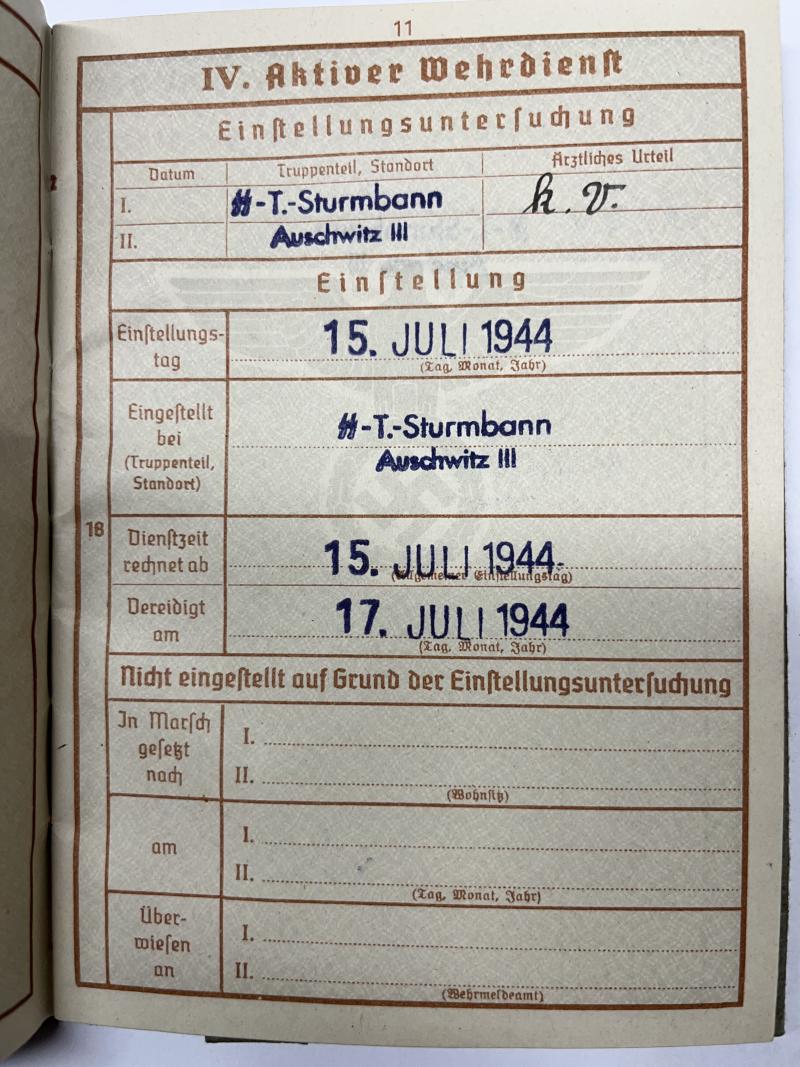 11
IV. Aktiver Wehrdienst
Einstellungsuntersuchung
Datum Truppenteil, Standort Ärztliches Urteil
I. ᛋᛋ-T.-Sturmbann k. v.
II. Auschwitz III
Einstellung
Einstellungs-
tag
15. JULI 1944
(Tag, Monat, Jahr)
Eingestellt
bei
(Truppenteil,
Standort)
ᛋᛋ-T.-Sturmbann
Auschwitz III
18
Dienstzeit
rechnet ab
15. JULI 1944
(Allgemeiner Einstellungstag)
Vereidigt
am
17. JULI 1944
(Tag, Monat, Jahr)
Nicht eingestellt auf Grund der Einstellungsuntersuchung
In Marsch
gesetzt
nach
I.
II.
(Wohnsitz)
am
I.
II.
(Tag, Monat, Jahr)
Über-
wiesen
an
I.
II.
(Wehrmeldeamt)